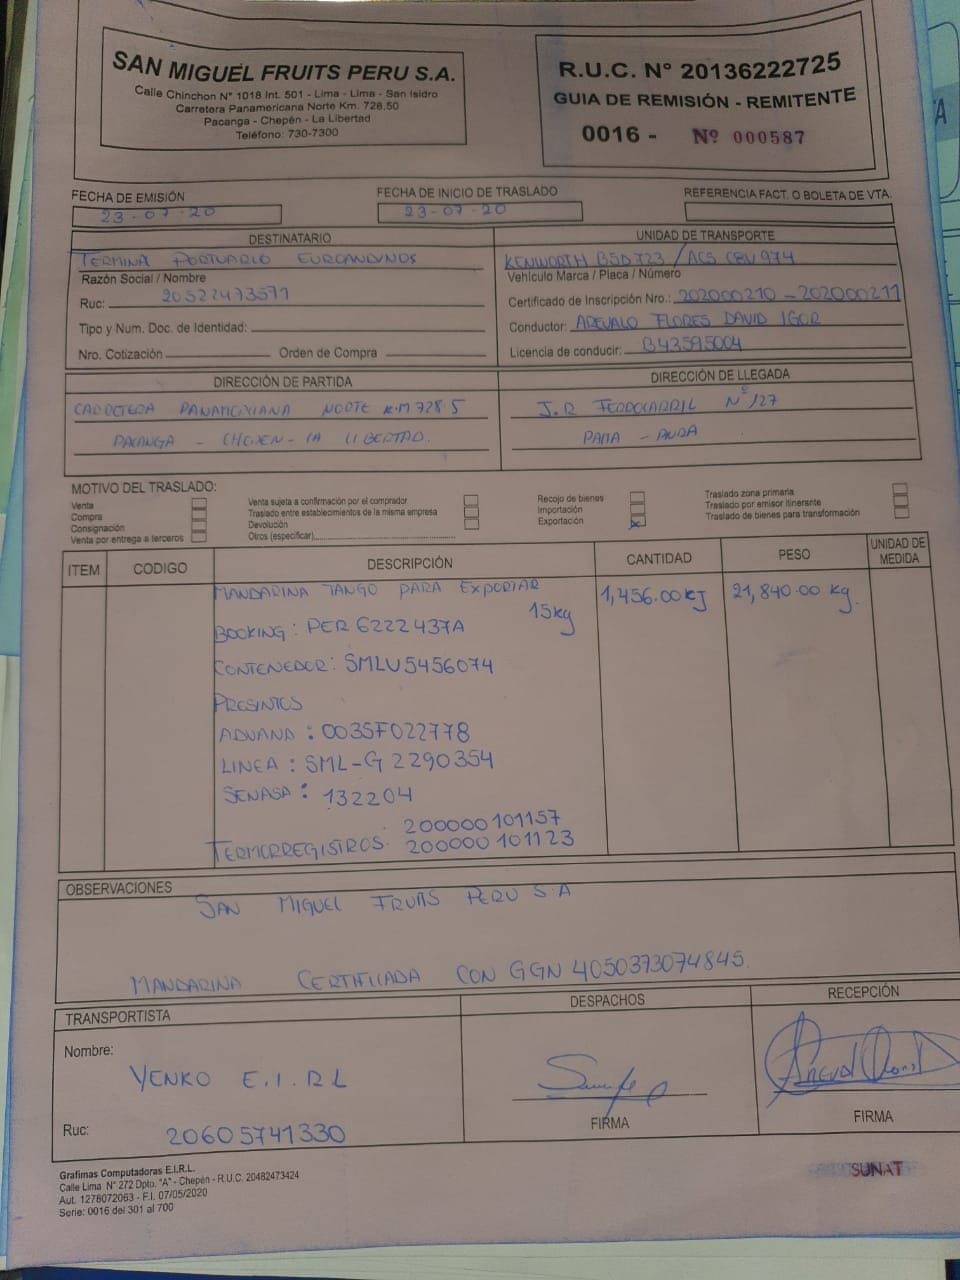 SAN MIGUEL FRUITS PERU S.A.
Calle Chinchon N° 1018 Int. 501 - Lima - Lima - San Isidro
Carretera Panamericana Norte Km. 728,50
Pacanga - Chepén - La Libertad
Teléfono: 730-7300
R.U.C. N° 20136222725
GUIA DE REMISIÓN - REMITENTE
0016 - Nº 000587
FECHA DE EMISIÓN
23-07-20
FECHA DE INICIO DE TRASLADO
23-07-20
REFERENCIA FACT. O BOLETA DE VTA.
DESTINATARIO
TERMINA PORTUARIO EUROANDINOS
Razón Social / Nombre
Ruc: 20522473571
Tipo y Num. Doc. de Identidad:
Nro. Cotización Orden de Compra
UNIDAD DE TRANSPORTE
KENWORTH B5D723 / ACS C8V974
Vehículo Marca / Placa / Número
Certificado de Inscripción Nro.: 202000210 - 202000211
Conductor: AREVALO FLORES DAVID IGOR
Licencia de conducir: B43595004
DIRECCIÓN DE PARTIDA
CARRETERA PANAMERICANA NORTE KM 728.5
PACANGA - CHEPEN - LA LIBERTAD.
DIRECCIÓN DE LLEGADA
J.R FERROCARRIL Nº 127
PAITA - PIURA
MOTIVO DEL TRASLADO:
Venta
Compra
Consignación
Venta por entrega a terceros
Venta sujeta a confirmación por el comprador
Traslado entre establecimientos de la misma empresa
Devolución
Otros (especificar)
Recojo de bienes
Importación
Exportación
Traslado zona primaria
Traslado por emisor itinerante
Traslado de bienes para transformación
ITEM CODIGO DESCRIPCIÓN CANTIDAD PESO UNIDAD DE MEDIDA
MANDARINA TANGO PARA EXPORTAR 1,456.00 KJ 21,840.00 Kg.
15kg
BOOKING: PER 6222437A
CONTENEDOR: SMLU5456074
PRESINTOS
ADUANA: 0035F022778
LINEA: SML-G 2290354
SENASA: 132204
200000101157
TERMORREGISTROS: 200000101123
OBSERVACIONES
SAN MIGUEL FRUITS PERU S.A
MANDARINA CERTIFICADA CON GGN 4050373074845.
TRANSPORTISTA
Nombre:
YENKO E.I.R.L
Ruc: 20605741330
DESPACHOS
FIRMA
RECEPCIÓN
FIRMA
Grafimas Computadoras E.I.R.L.
Calle Lima N° 272 Dpto. "A" - Chepén - R.U.C. 20482473424
Aut. 1278072063 - F.I. 07/05/2020
Serie: 0016 del 301 al 700
SUNAT